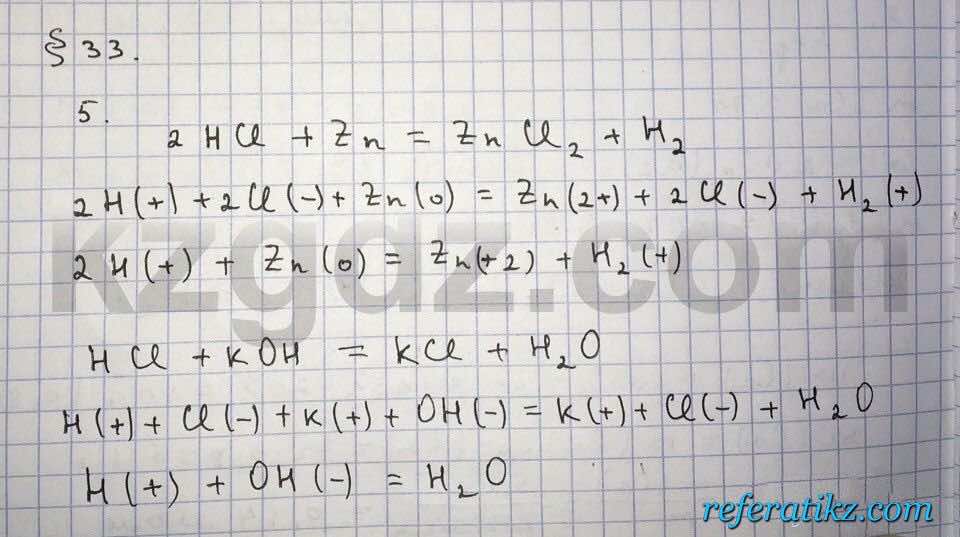 § 33.
5.
2 HCl + Zn = ZnCl₂ + H₂
2H(+) + 2Cl(-) + Zn(0) = Zn(2+) + 2Cl(-) + H₂(+)
2H(+) + Zn(0) = Zn(+2) + H₂(+)
kzgdz.com
HCl + KOH = KCl + H₂O
H(+) + Cl(-) + K(+) + OH(-) = K(+) + Cl(-) + H₂O
H(+) + OH(-) = H₂O
referatikz.com